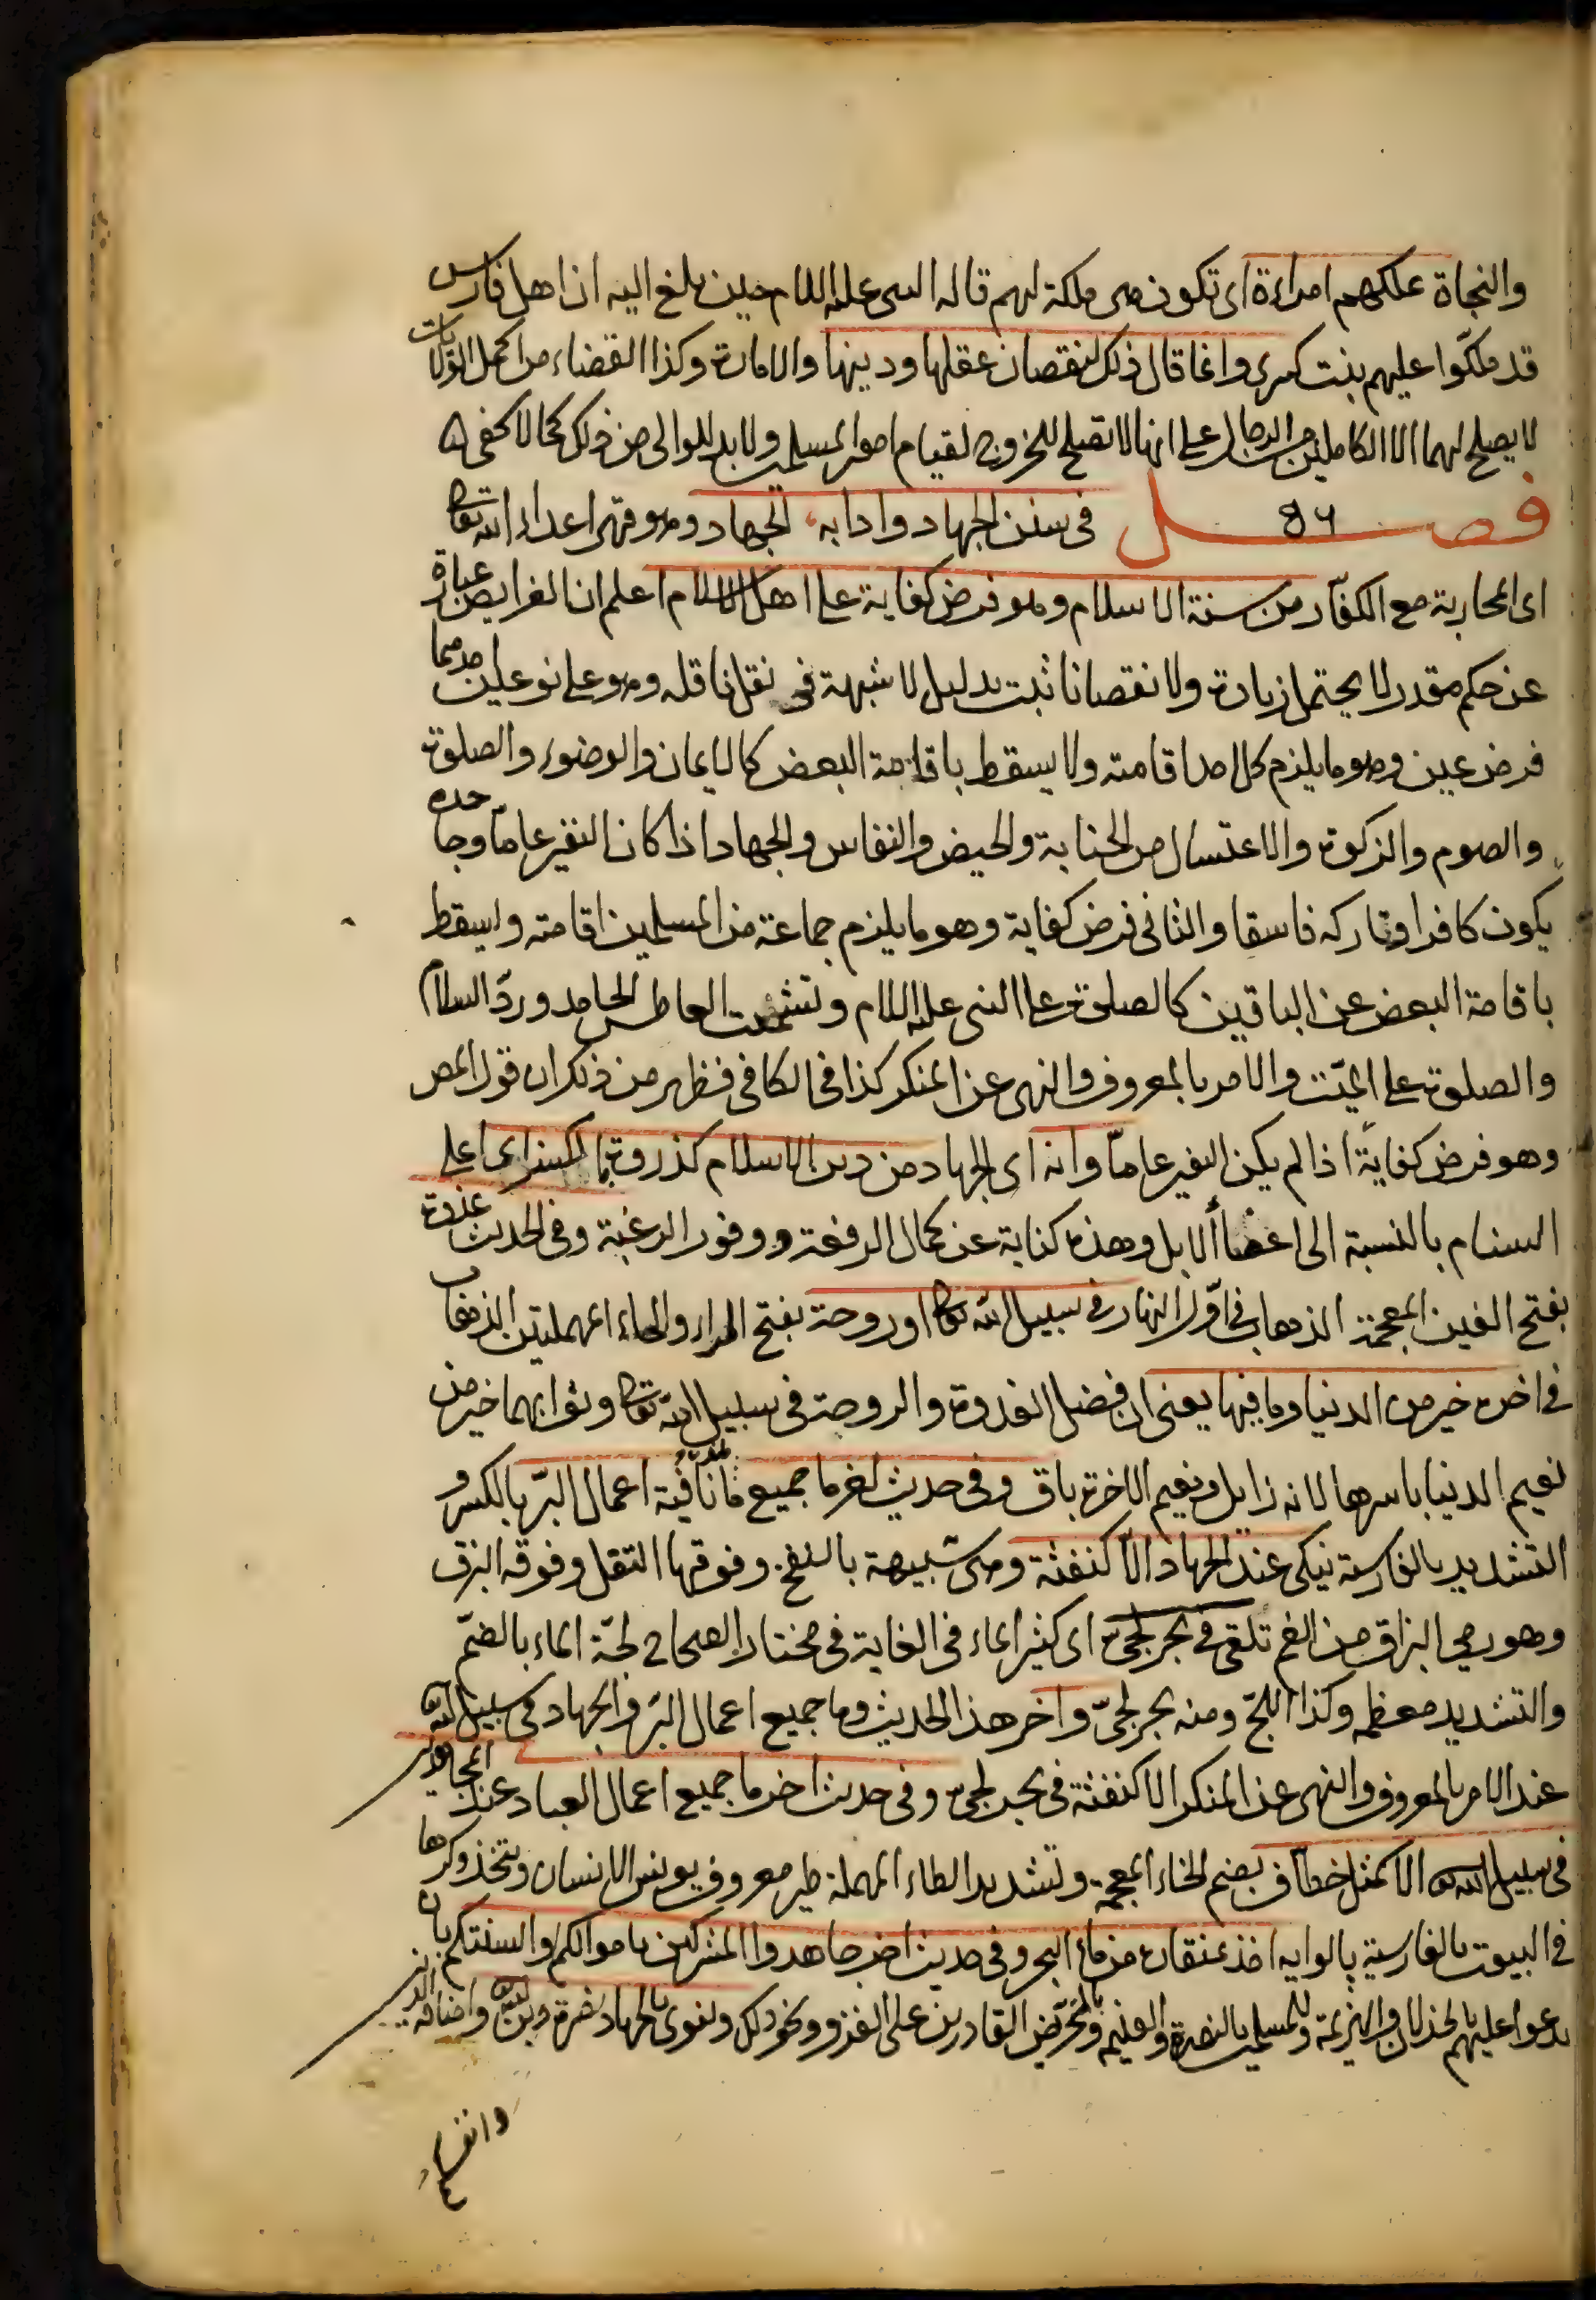 والنجاة تملكهم امراءة اى تكون هى ملكة لهم قاله النبى عليه السلام حين بلغ اليه ان اهل فارس
قد ملكوا عليهم بنت كسرى وانما قال ذلك لنقصان عقلها ودينها والامارة وكذا القضاء من اكمل الولايات
لا يصلح لهما الا الكاملين من الرجال على انها لا تصلح للخروج لقيام امور المسلمين ولا بد للوالى من ذلك كما لا يخفى
فصل ٥٦ فى سنن الجهاد وادابه الجهاد وهو قهر اعداء الله تعالى
اى المحاربة مع الكفار من سنة الاسلام وهو فرض كفاية على اهل الاسلام اعلم ان الفرايض عبارة
عن حكم مقدر لا يحتمل زيادة ولا نقصانا ثبت بدليل لا شبهة فى نقل ناقله وهو على نوعين احدهما
فرض عين وهو ما يلزم كل احد اقامته ولا يسقط باقامة البعض كالايمان والوضوء والصلوة
والصوم والزكوة والاغتسال من الجنابة والحيض والنفاس والجهاد اذا كان النفير عاما وجاحده
يكون كافرا وتاركه فاسقا والثانى فرض كفاية وهو ما يلزم جماعة من المسلمين اقامته ويسقط
باقامة البعض عن الباقين كالصلوة على النبى عليه السلام وتشميت العاطس الحامد ورد السلام
والصلوة على الميت والامر بالمعروف والنهى عن المنكر كذا فى الكافى فظهر من ذلك ان قول المص
وهو فرض كفاية اذا لم يكن النفير عاما وانه اى الجهاد من دين الاسلام كذروة بالكسر اى اعلى
السنام بالنسبة الى اعضاء الابل وهذه كناية عن كمال الرفعة ووفور الرغبة وفى الحديث غدوة
بفتح الغين المعجمة الذهاب فى اول النهار فى سبيل الله تعالى او روحة بفتح الراء والحاء المهملتين الذهاب
فى اخره خير من الدنيا وما فيها يعنى ان فضل الغدوة والروحة فى سبيل الله تعالى وثوابهما خير من
نعيم الدنيا باسرها لانه زايل ونعيم الاخرة باق وفى حديث اخر ما جميع ما نافية اعمال البر بالكسر و
التشديد بالفارسية نيكى عند الجهاد الا كنفثة وهى شبيهة بالنفخ وفوقها التفل وفوقه البزق
وهو رمى البزاق من الفم تلقى فى بحر لجى اى كثير الماء فى الغاية فى مختار الصحاح لجة الماء بالضم
والتشديد معظمه وكذا اللج ومنه بحر لجى واخر هذا الحديث وما جميع اعمال البر والجهاد فى سبيل الله
عند الامر بالمعروف والنهى عن المنكر الا كنفثة فى بحر لجى وفى حديث اخر ما جميع اعمال العباد عند المجاهدين
فى سبيل الله الا كمثل خطاف بضم الخاء المعجمة وتشديد الطاء المهملة طير معروف يونس الانسان ويتخذ وكرها
فى البيوت بالفارسية پالوايه اخذ بمنقاره من ماء البحر وفى حديث اخر جاهدوا المشركين باموالكم والسنتكم بان
يدعوا عليهم بالخذلان والهزيمة وللمسلمين بالنصرة والغنيمة وبالتحريض القادرين على الغزو ونحو ذلك وينوى بالجهاد نصرة دين الله واضافة الدين
وانفسكم